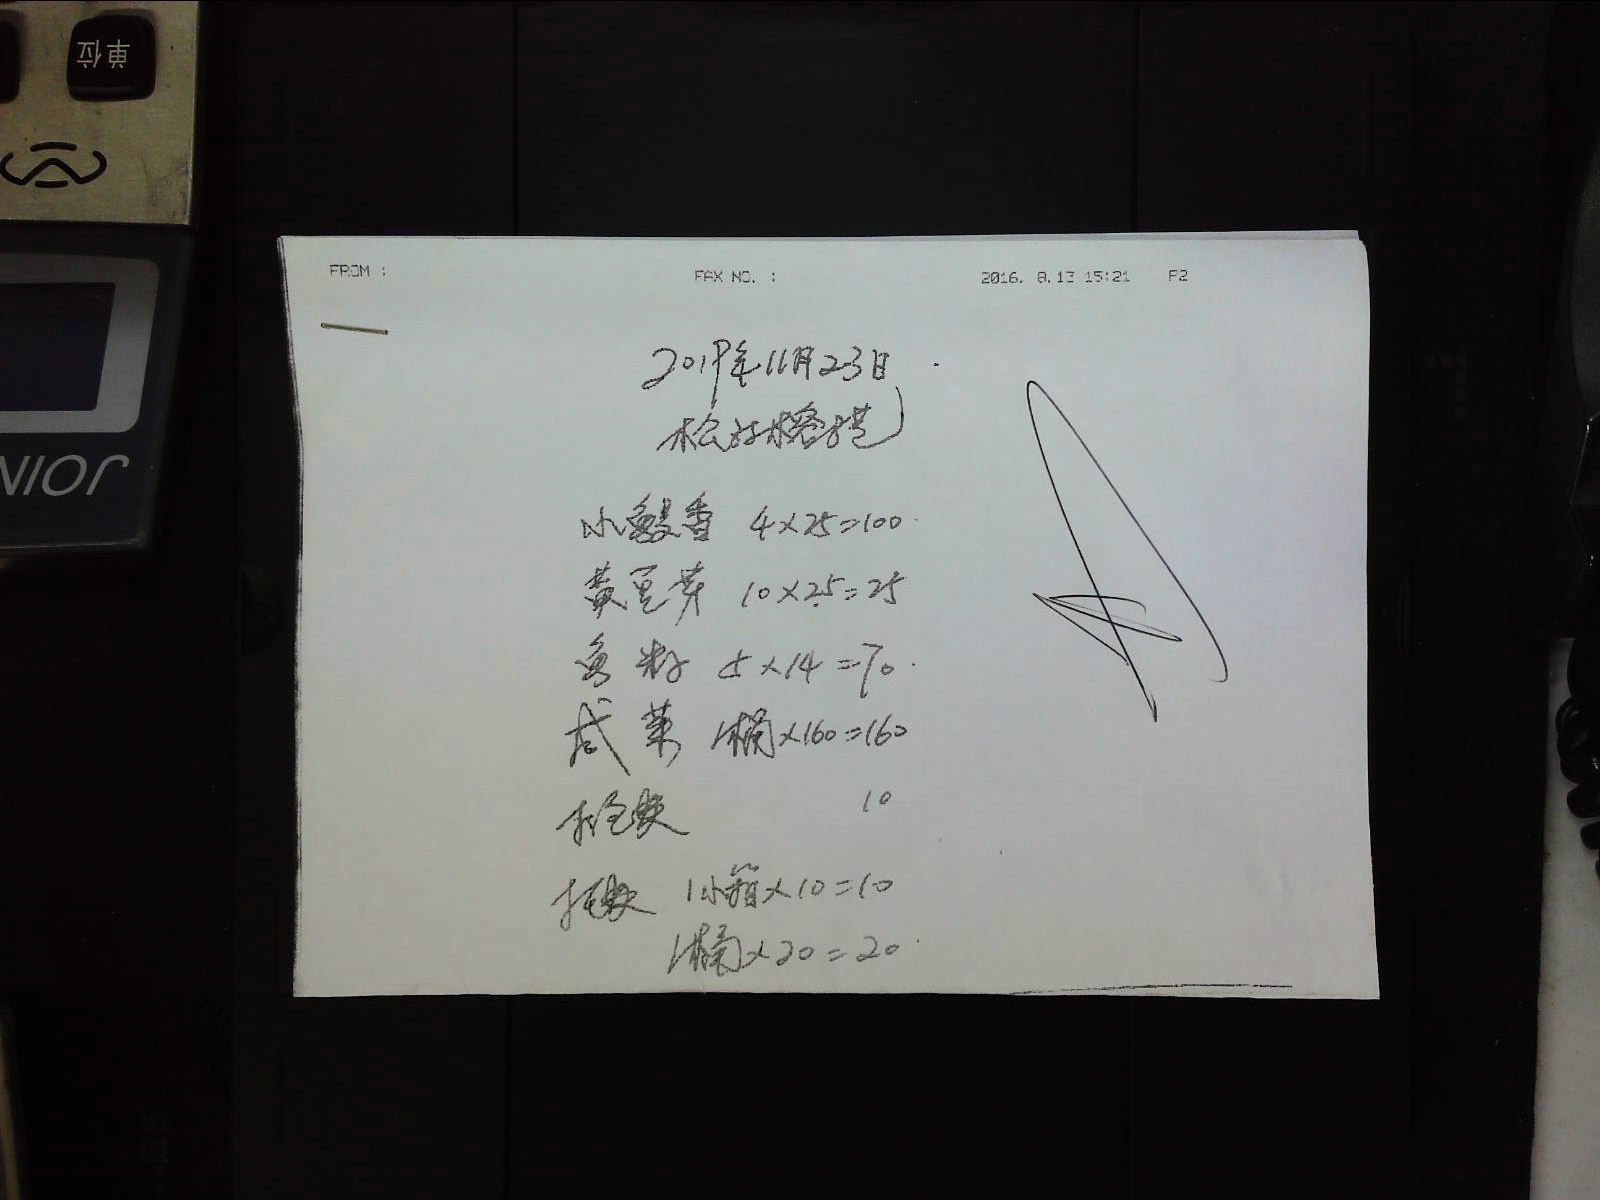 单位
JOIN
FROM :
FAX NO. :
2016. 8.13 15:21 P2
2019年11月23日
小鳗香 4×25=100
黄豆芽 10×2.5=25
鱼籽 5×14=70
咸菜 1桶×160=160
10
1小箱×10=10
1桶×20=20